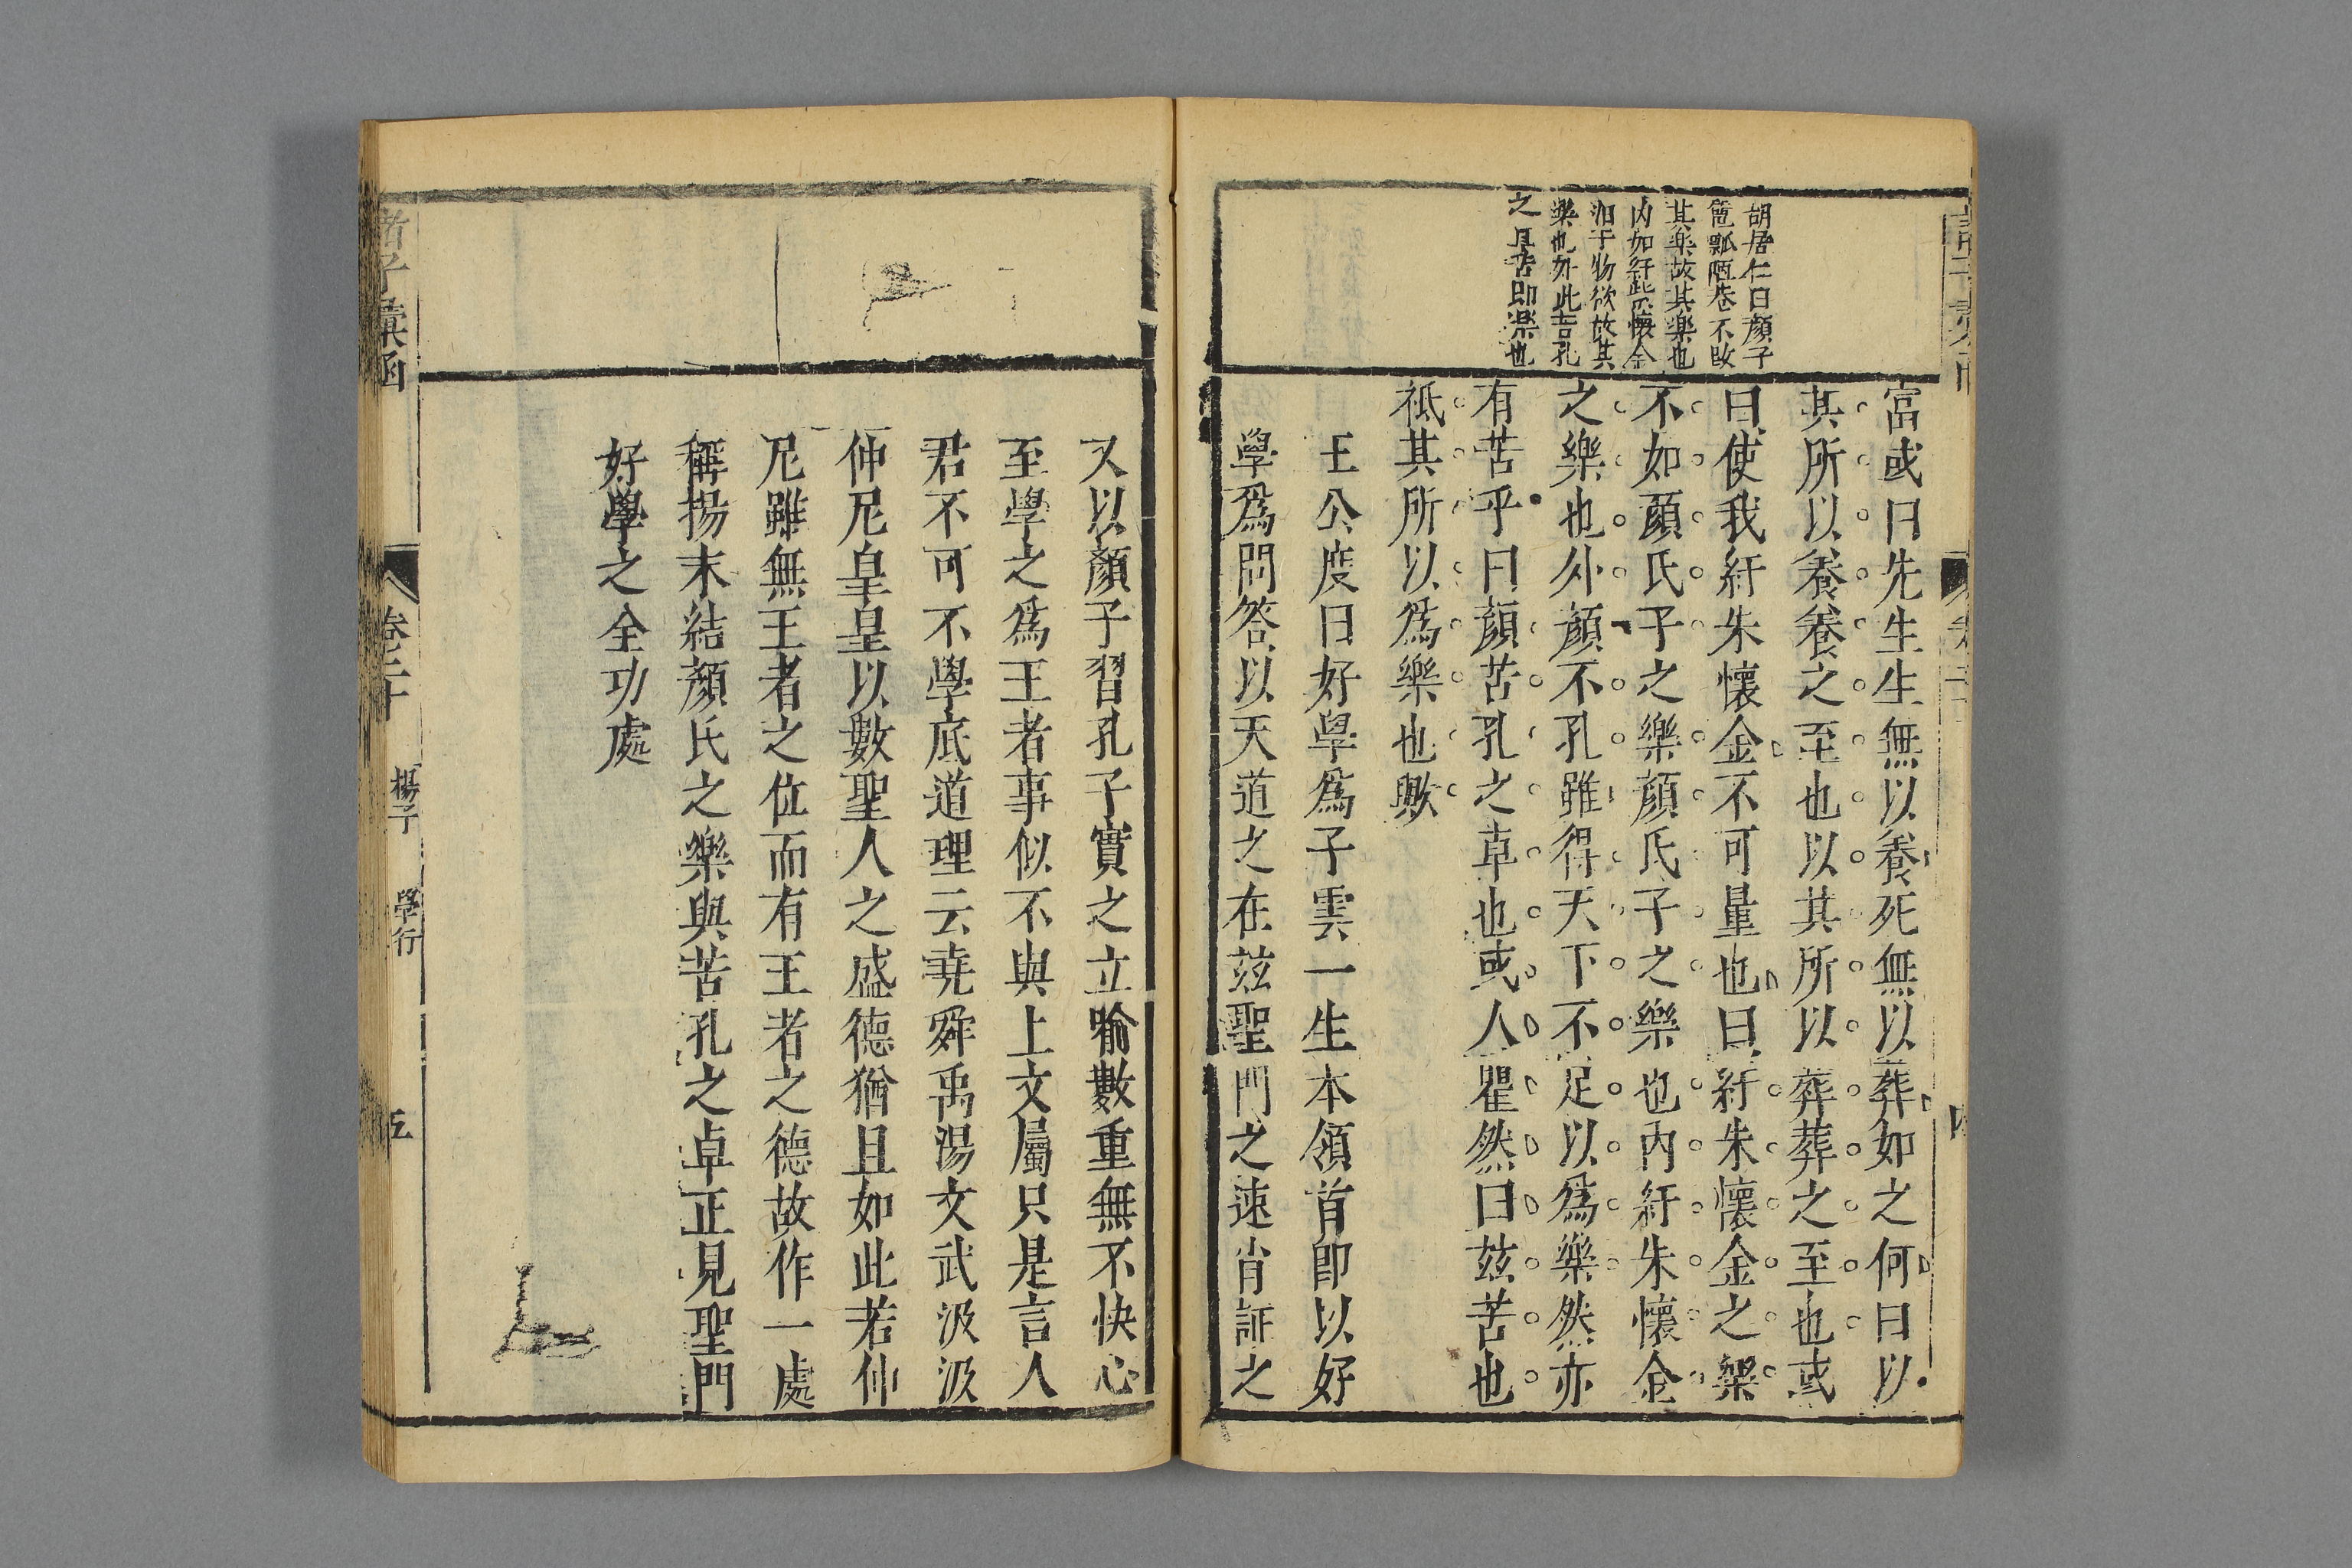 胡居仁曰顏子
簞瓢陋巷不改
其樂故其樂也
内如紆此𠮷懷金
汨于物欲故其
樂也外此言孔
之卓苦即樂也
富或曰先生生無以養死無以葬如之何曰以
其所以養養之至也以其所以葬葬之至也或
曰使我紆朱懷金不可量也曰紆朱懷金之樂
不如顏氏子之樂顏氏子之樂也內紆朱懷金
之樂也外顏不孔雖得天下不足以爲樂然亦
有苦乎曰顏苦孔之卓也或人瞿然曰茲苦也
祗其所以爲樂也歟
王公度曰好學爲子雲一生本領首即以好
學爲問答以天道之在茲聖門之速肖証之
又以顏子習孔子實之立喻數重無不快心
至學之爲王者事似不與上文屬只是言人
君不可不學底道理云堯舜禹湯文武汲汲
仲尼皇皇以數聖人之盛德猶且如此若仲
尼雖無王者之位而有王者之德故作一處
稱揚末結顏氏之樂與苦孔之卓正見聖門
好學之全功處
諸子彙函
卷二十
揚子
學行
五